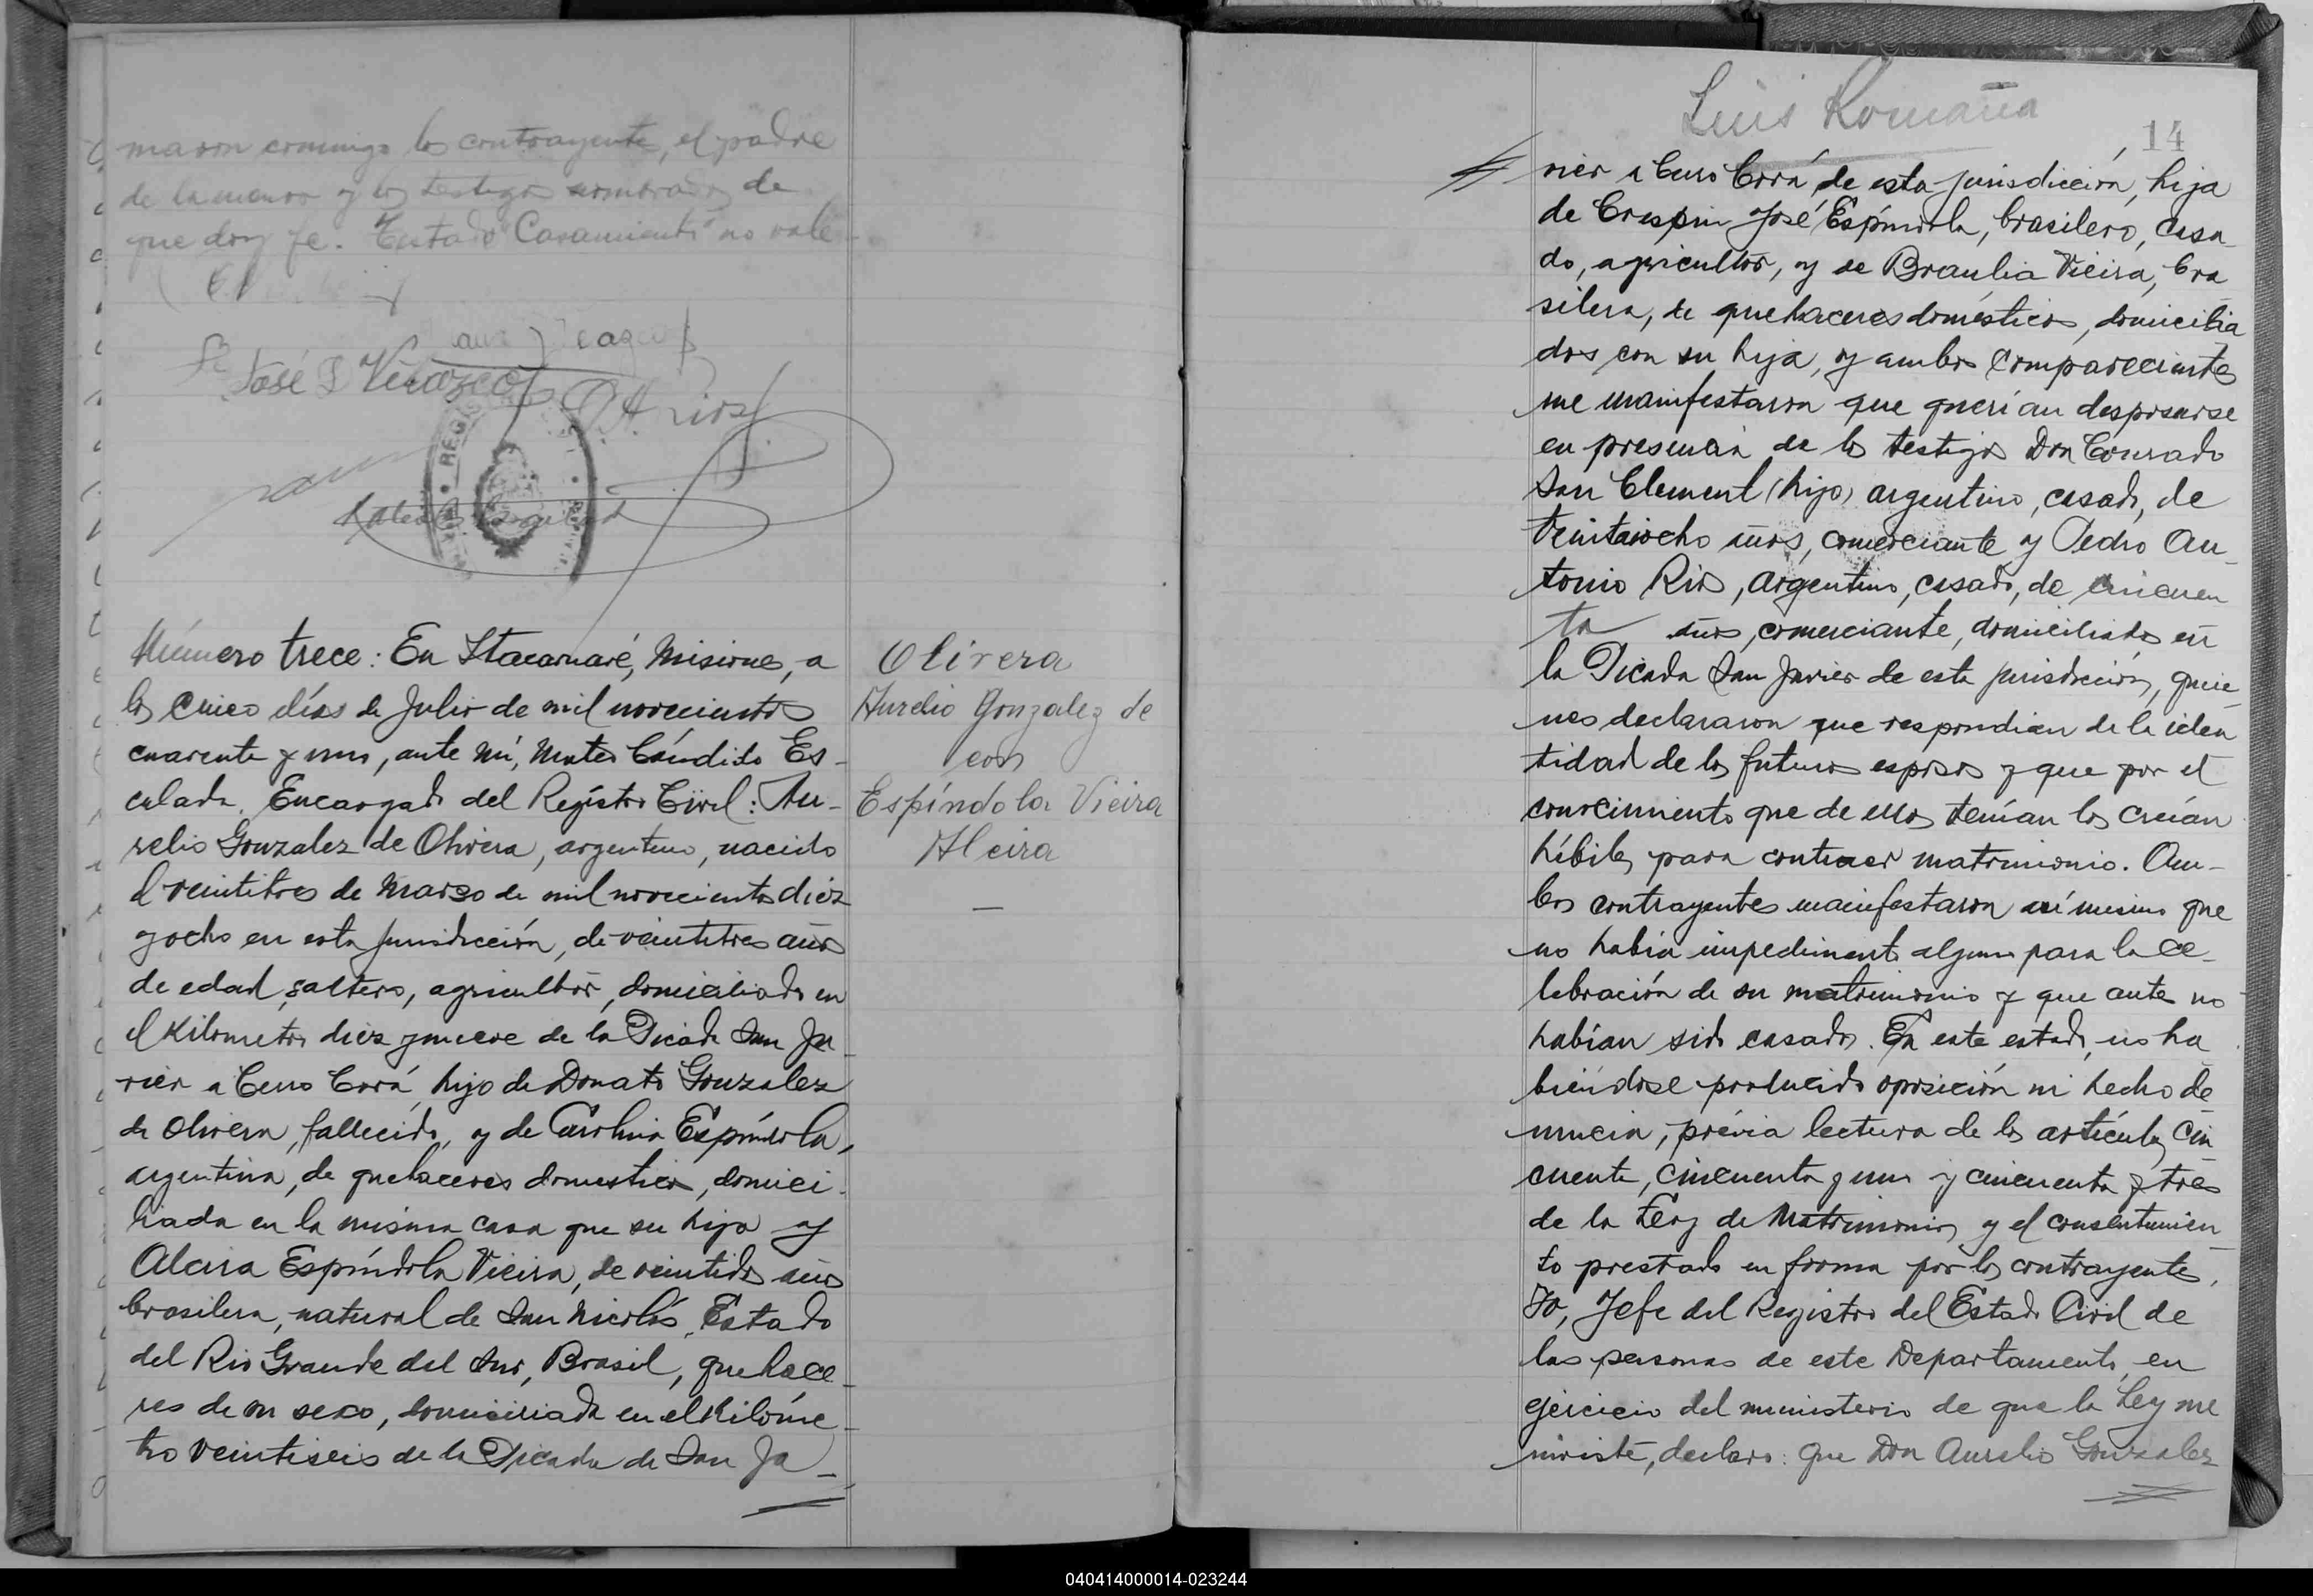 maron conmigo los contrayentes, el padre
de la menor y los testigos nombrados de
que doy fe. Testado "Casamiento" no vale
José S Velazco
P A Rios
Número trece: En Itacaruaré, Misiones, a
los cinco días de Julio de mil novecientos
cuarenta y uno, ante mí, Mateo Cándido Es-
calada, Encargado del Registro Civil: Au-
relio Gonzalez de Olivera, argentino, nacido
el veintitres de Marzo de mil novecientos diez
y ocho en esta jurisdicción, de veintitres años
de edad, soltero, agricultor, domiciliado en
el Kilometro diez y nueve de la Picada San Ja-
vier a Cerro Corá, hijo de Donato Gonzalez
de Olivera, fallecido, y de Carolina Espíndola,
argentina, de quehaceres domesticos, domici-
liada en la misma casa que su hijo y
Alcira Espíndola Vieira, de veintidos años
brasilera, natural de San Nicolás, Estado
del Rio Grande del Sur, Brasil, quehace-
res de su sexo, domiciliada en el Kilóme-
tro veintiseis de la Picada de San Ja-
Olivera
Aurelio Gonzalez de
con
Espíndola Vieira
Alcira
—
Luis Romaña
14
vier a Cerro Corá, de esta jurisdicción, hija
de Crespin José Espíndola, brasilero, casa-
do, agricultor, y de Braulia Vieira, bra
silera, de quehaceres domésticos, domicilia
dos con su hija, y ambos comparecientes
me manifestaron que querían desposarse
en presencia de los testigos Don Conrado
San Clement (hijo) argentino, casado, de
treintaiocho años, comerciante y Pedro An-
tonio Rios, argentino, casado, de cincuen
ta años, comerciante, domiciliados en
la Picada San Javier de esta jurisdicción, quie
nes declararon que respondian de la iden
tidad de los futuros esposos y que por el
conocimiento que de ellos tenían los creían
hábiles para contraer matrimonio. Am-
bos contrayentes manifestaron así mismo que
no había impedimento alguno para la ce-
lebración de su matrimonio y que antes no
habían sido casados. En este estado, no ha
biéndose producido oposición ni hecho de
nuncia, prévia lectura de los artículos cin
cuenta, cincuenta y uno y cincuenta y tres
de la Ley de Matrimonio, y el consentimien-
to prestado en forma por los contrayentes,
Yo, Jefe del Registro del Estado Civil de
las personas de este Departamento, en
ejercicio del ministerio de que la Ley me
inviste, declaro: que Don Aurelio Gonzalez
040414000014-023244